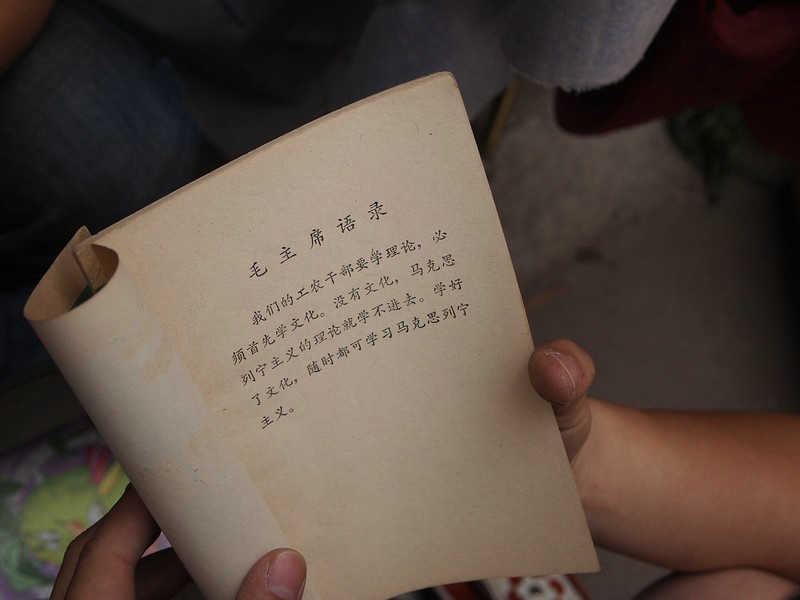 毛主席语录
我们的工农干部要学理论，必
须首先学文化。没有文化，马克思
列宁主义的理论就学不进去。学好
了文化，随时都可学习马克思列宁
主义。